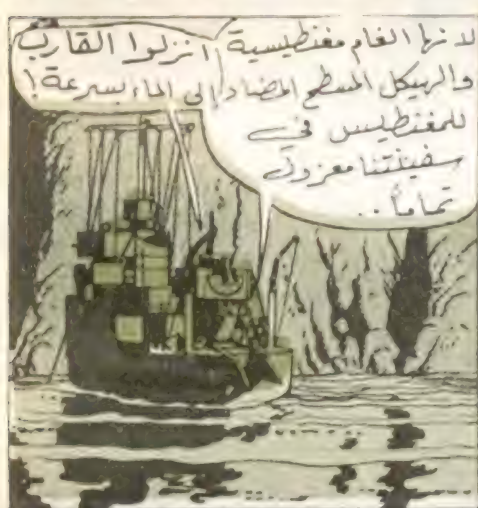 لانها الغام مغنطيسية
والهيكل المسطح المضاد
للمغنطيس في
سفينتنا معزول
تماماً..
انزلوا القارب
إلى الماء بسرعة!